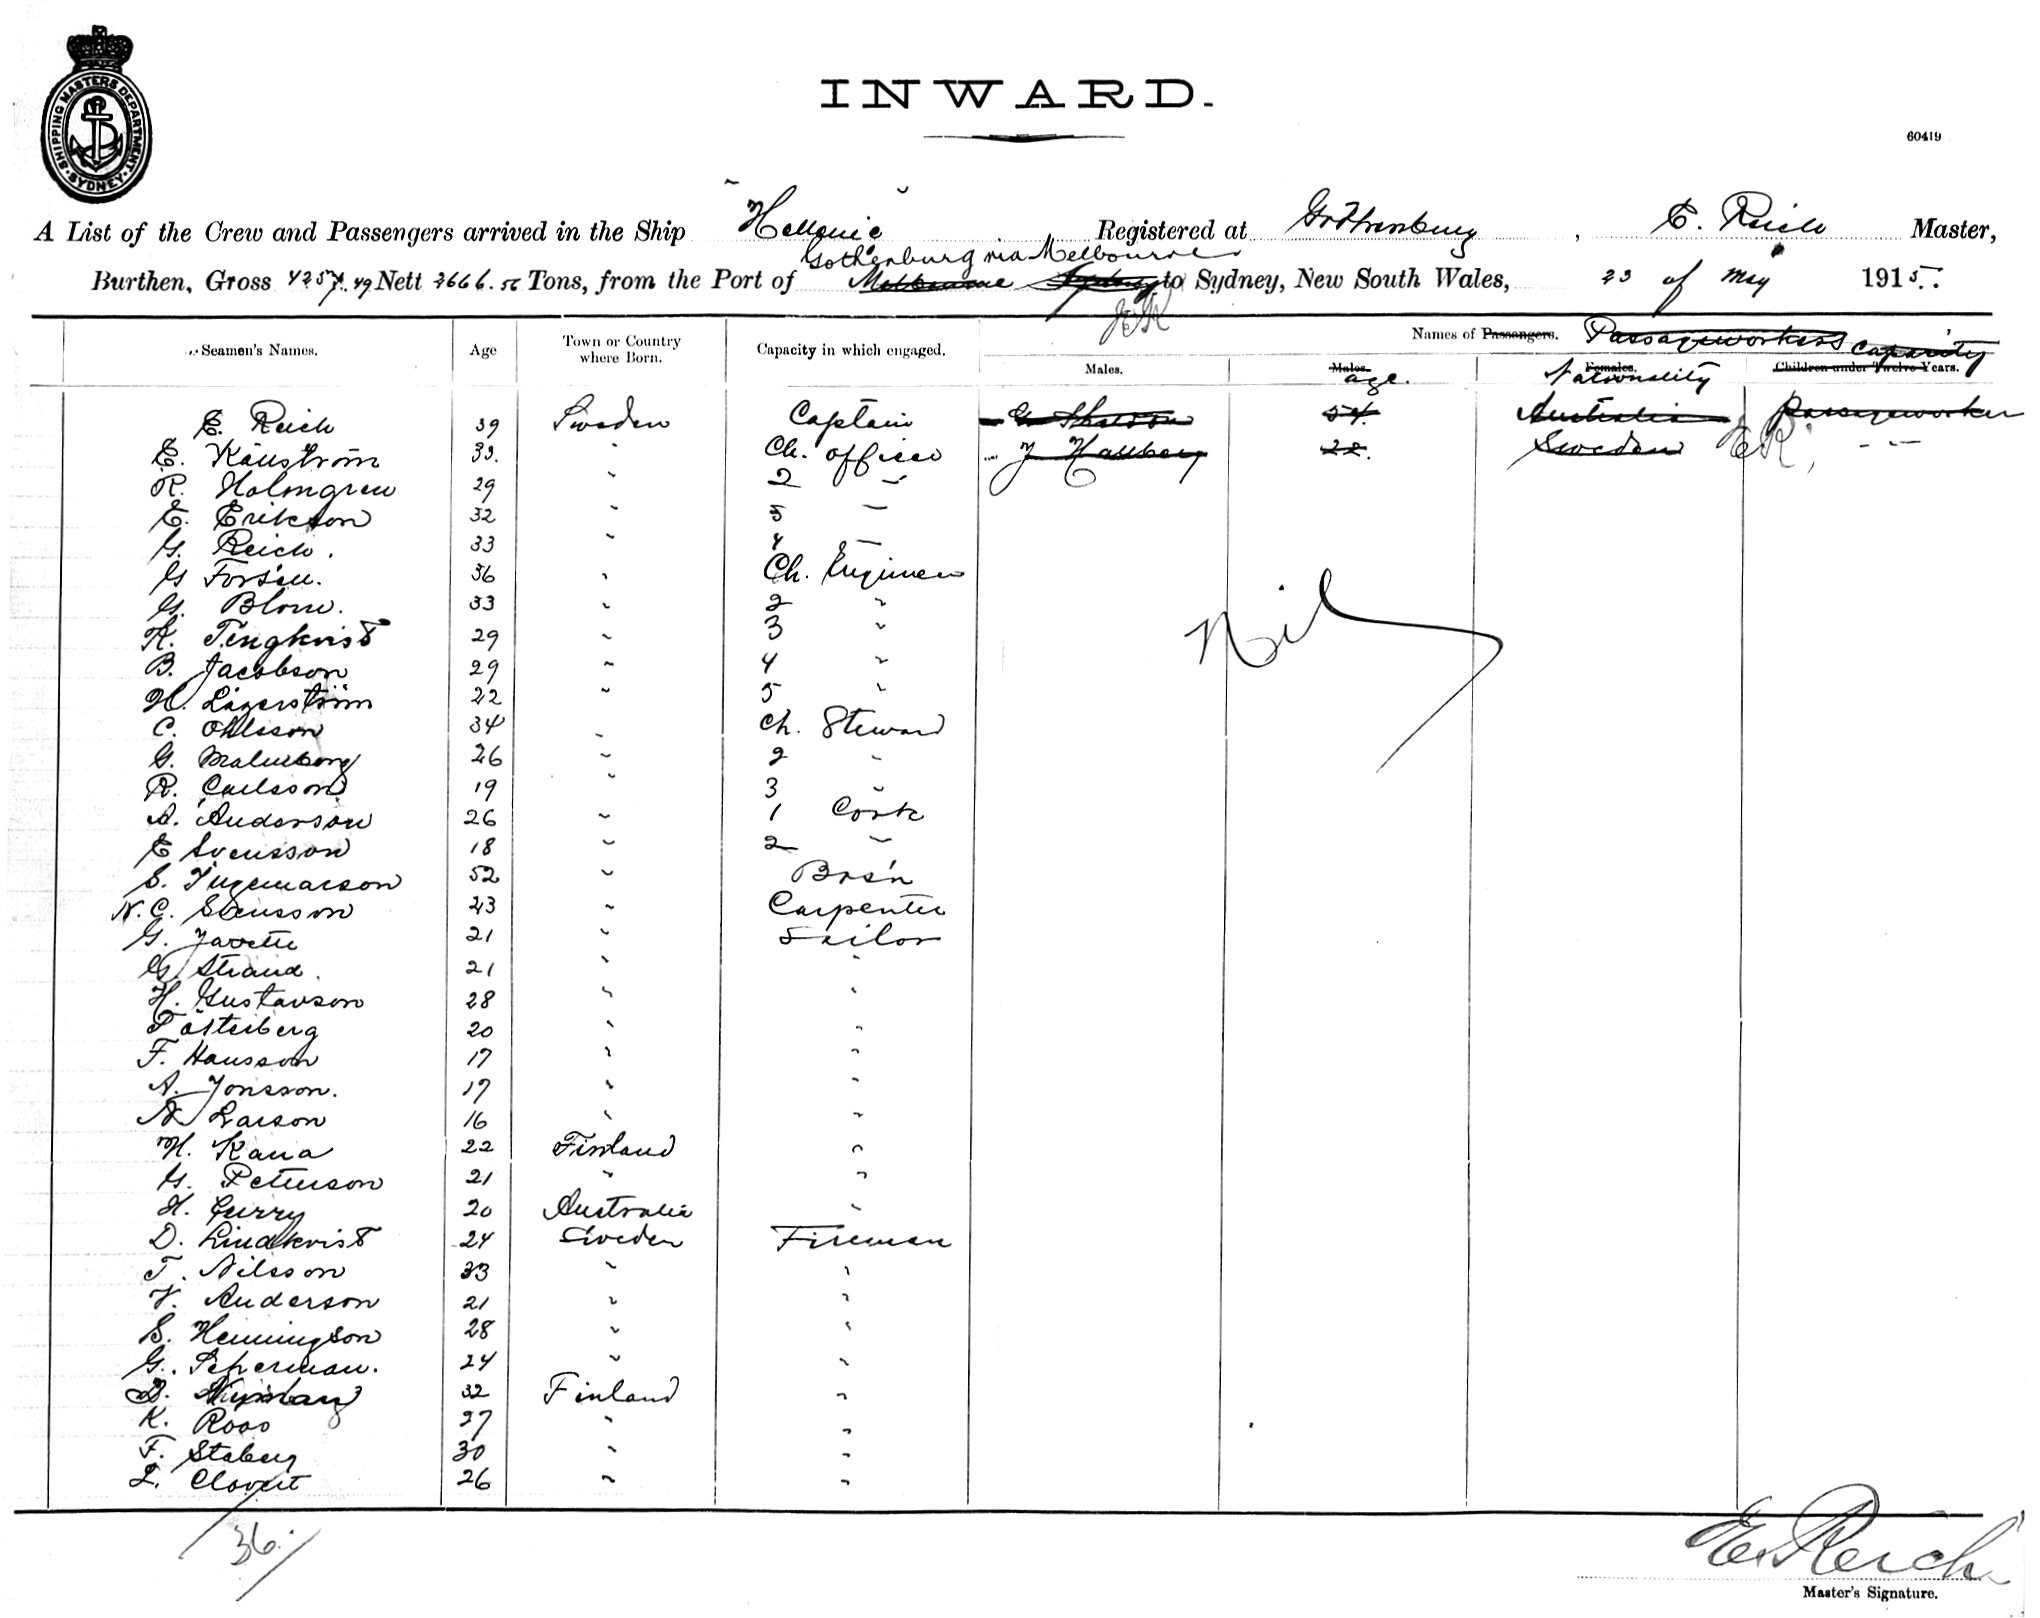 SHIPPING MASTERS DEPARTMENT SYDNEY
INWARD.
60419
A List of the Crew and Passengers arrived in the Ship "Hellenic" Registered at Gothenburg, E. Reich Master,
Gothenburg via Melbourne
Burthen, Gross 4257.49 Nett 2666.56 Tons, from the Port of Melbourne Sydney to Sydney, New South Wales, 23 of May 1915.
Seamen's Names. Age Town or Country where Born. Capacity in which engaged. Names of Passengers. Passageworkers capacity
Males. Males. age. Females. Nationality Children under Twelve Years.
E. Reich 39 Sweden Captain 54. Australia passageworker
E. Känström 33. " Ch. officer J Hallberg 22. Sweden ER. "
R. Holmgren 29 " 2 "
E. Erikson 32 " 3 "
G. Reich. 33 " 4 "
G Forsén. 36 " Ch. Engineer
G. Blom. 33 " 2 "
K. Tengkvist 29 " 3 "
B. Jacobson 29 " 4 "
H. Lagerström 22 " 5 "
C. Ohlsson 34 " Ch. Steward
G. Malmborg 26 " 2 "
R. Carlsson 19 " 3 "
A. Anderson 26 " 1 Cook
E Svensson 18 " 2 "
S. Ingemarson 52 " Bos'n
N. C. Svensson 43 " Carpenter
G. 21 " Sailor
G. Strand. 21 " "
H. Gustavson 28 " "
Österberg 20 " "
F. Hansson 17 " "
A. Jonsson. 17 " "
N Larson 16 " "
H. Kana 22 Finland "
G. Peterson 21 " "
H. Curry 20 Australia "
D. Lindkvist 24 Sweden Fireman
T. Nilsson 33 " "
V. Anderson 21 " "
S. Henningson 28 " "
G. Scherman. 24 " "
D. Nyman 32 Finland "
K. Roos 27 " "
F. Staberg 30 " "
L. 26 " "
Nil
36.
E. Reich
Master's Signature.